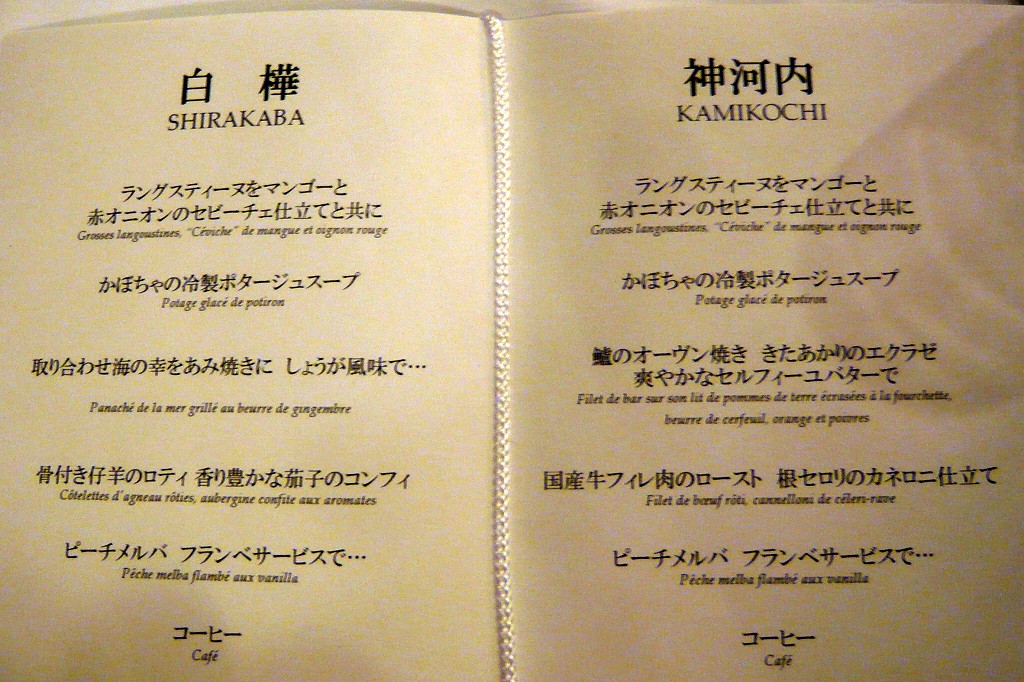 白 樺
SHIRAKABA
ラングスティーヌをマンゴーと
赤オニオンのセビーチェ仕立てと共に
Grosses langoustines, "Céviche" de mangue et oignon rouge
かぼちゃの冷製ポタージュスープ
Potage glacé de potiron
取り合わせ海の幸をあみ焼きに しょうが風味で…
Panaché de la mer grillé au beurre de gingembre
骨付き仔羊のロティ 香り豊かな茄子のコンフィ
Côtelettes d'agneau rôties, aubergine confite aux aromates
ピーチメルバ フランベサービスで…
Pêche melba flambé aux vanilla
コーヒー
Café
神河内
KAMIKOCHI
ラングスティーヌをマンゴーと
赤オニオンのセビーチェ仕立てと共に
Grosses langoustines, "Céviche" de mangue et oignon rouge
かぼちゃの冷製ポタージュスープ
Potage glacé de potiron
鱸のオーヴン焼き きたあかりのエクラゼ
爽やかなセルフィーユバターで
Filet de bar sur son lit de pommes de terre écrasées à la fourchette,
beurre de cerfeuil, orange et poivres
国産牛フィレ肉のロースト 根セロリのカネロニ仕立て
Filet de bœuf rôti, cannelloni de céleri-rave
ピーチメルバ フランベサービスで…
Pêche melba flambé aux vanilla
コーヒー
Café